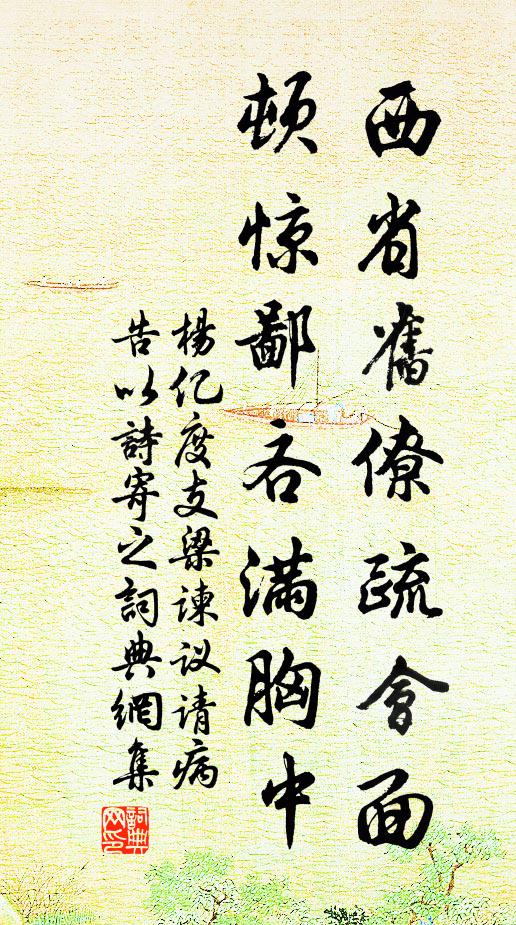 西省舊僚疏會面
顿惊鄙吝满胸中
楊亿度支梁谏议请病
告以詩寄之詞典網集
詞典网印